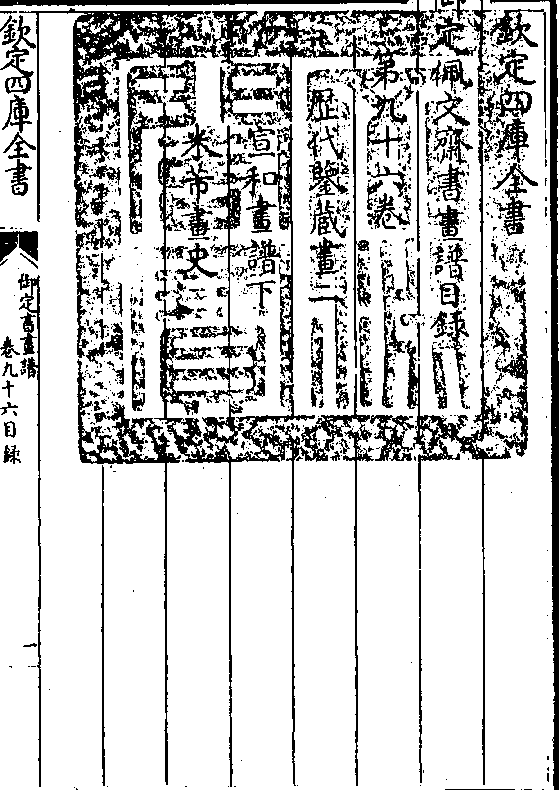 欽定四庫全書
御定佩文齋書畫譜目錄
第九十六卷
歴代鑒藏畫二
宣和畫譜下
米芾畫史
欽定四庫全書
御定書畫譜
卷九十六目錄
一